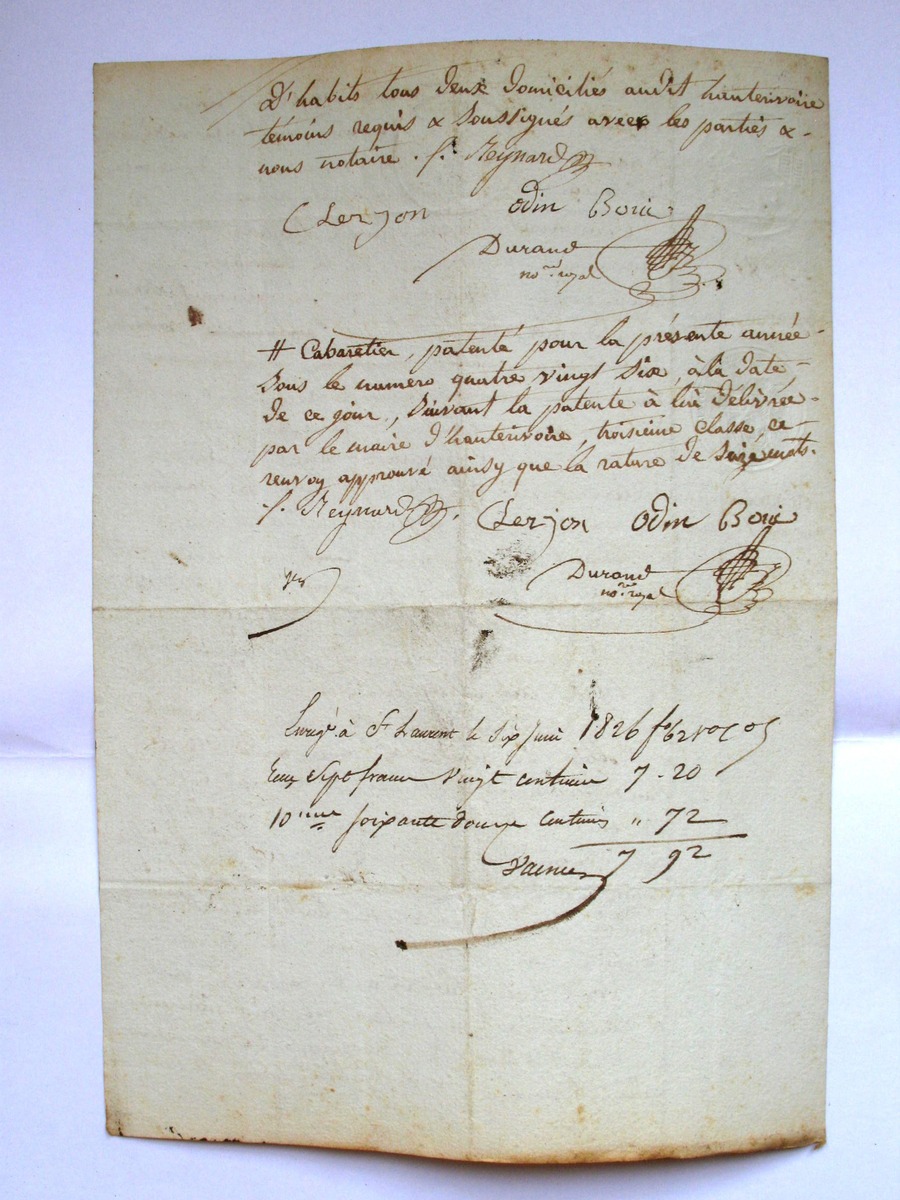 D'habits tous deux domiciliés audit hauterivoire
témoins requis & soussignés avec les parties &
nous notaire . f. Reynard
Clerjon odin Borie
Durand
no.re royal
# Cabaretier, patenté pour la présente année
sous le numero quatre vingt six, à la date
de ce jour, suivant la patente à lui délivrée
par le maire d'hauterivoire, troisième classe, ce
renvoy approuvé ainsy que la rature de seize mots.
f. Reynard . Clerjon odin Borie
Durand
no.re royal
Enregé à St Laurent le six juin 1826 fo 62 ro
Reçu sept francs vingt centimes 7-20
10ème soixante douze centimes " 72
7 92